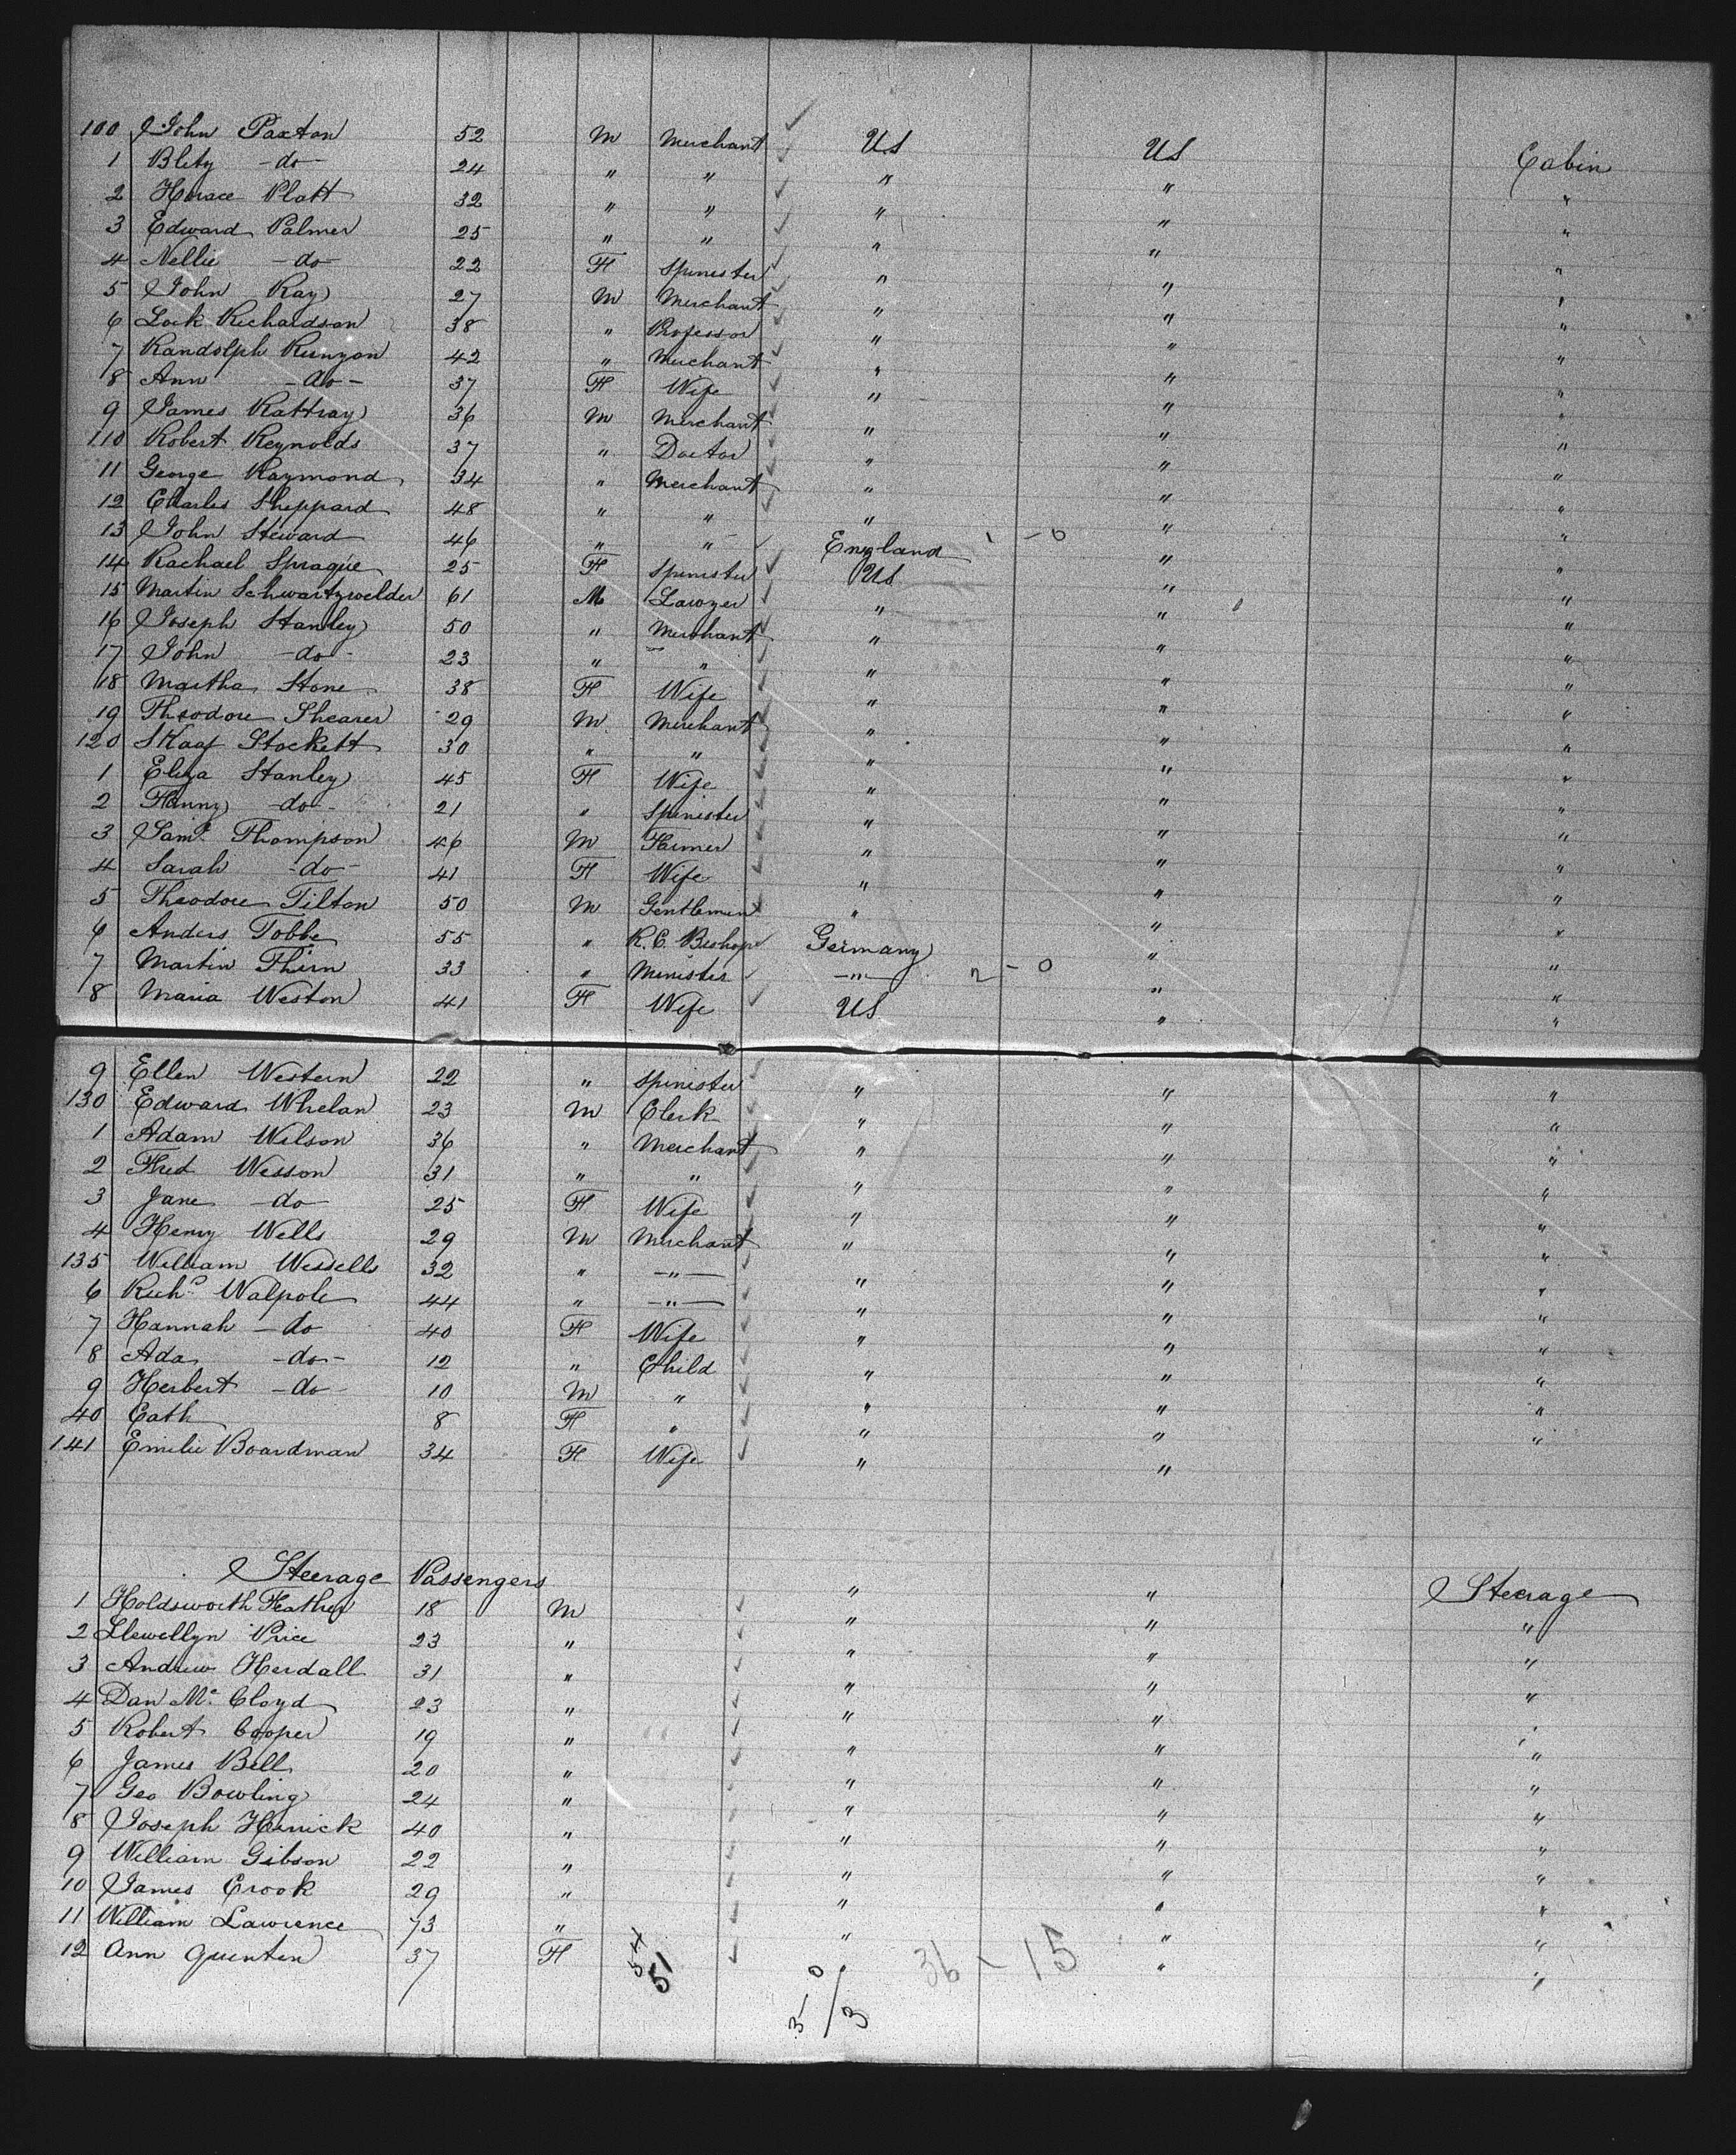 100 John Paxton 52 M Merchant US US Cabin
1 Blety -do- 24 " " " " "
2 Horace Platt 32 " " " " "
3 Edward Palmer 25 " " " " "
4 Nellie -do- 22 F Spinister " " "
5 John Ray 27 M Merchant " " "
6 Lock Richardson 38 " Professor " " "
7 Randolph Runyon 42 " Merchant " " "
8 Ann -do- 37 F Wife " " "
9 James Rattray 36 M Merchant " " "
110 Robert Reynolds 37 " Doctor " " "
11 George Raymond 34 " Merchant " " "
12 Charles Sheppard 48 " " " " "
13 John Steward 46 " " England 1-0 " "
14 Rachael Sprague 25 F Spinister US " "
15 Martin Schwartzwelder 61 M Lawyer " " "
16 Joseph Stanley 50 " Merchant " " "
17 John -do- 23 " " " " "
18 Martha Stone 38 F Wife " " "
19 Theodore Shearer 29 M Merchant " " "
120 Stockett 30 " " " " "
1 Eliza Stanley 45 F Wife " " "
2 Fanny -do- 21 " Spinister " " "
3 Saml Thompson 46 M Farmer " " "
4 Sarah -do- 41 F Wife " " "
5 Theodore Tilton 50 M Gentleman " " "
6 Anders Tobbe 55 " R.C. Bishop Germany " "
7 Martin Thirn 33 " Minister -"- 2-0 " "
8 Maria Weston 41 F Wife US " "
9 Ellen Western 22 " Spinister " " "
130 Edward Whelan 23 M Clerk " " "
1 Adam Wilson 36 " Merchant " " "
2 Fred Wesson 31 " " " " "
3 Jane -do- 25 F Wife " " "
4 Henry Wells 29 M Merchant " " "
135 William Wessells 32 " -"- " " "
6 Richd Walpole 44 " -"- " " "
7 Hannah -do- 40 F Wife " " "
8 Ada -do- 12 " Child " " "
9 Herbert -do- 10 M " " " "
40 Cath 8 F " " " "
141 Emilie Boardman 34 F Wife " "
Steerage Passengers " " Steerage
1 Holdsworth Feather 18 M " " "
2 Llewellyn Price 23 " " " "
3 Andrew Herdall 31 " " " "
4 Dan Mc Cloyd 23 " " " "
5 Robert Cooper 19 " " " "
6 James Bell 20 " " " "
7 Geo Bowling 24 " " " "
8 Joseph Herrick 40 " " " "
9 William Gibson 22 " " " "
10 James Crook 29 " " " "
11 William Lawrence 73 " " " "
12 Ann Quentin 37 F " " "
54
51
36-15
3-0/3